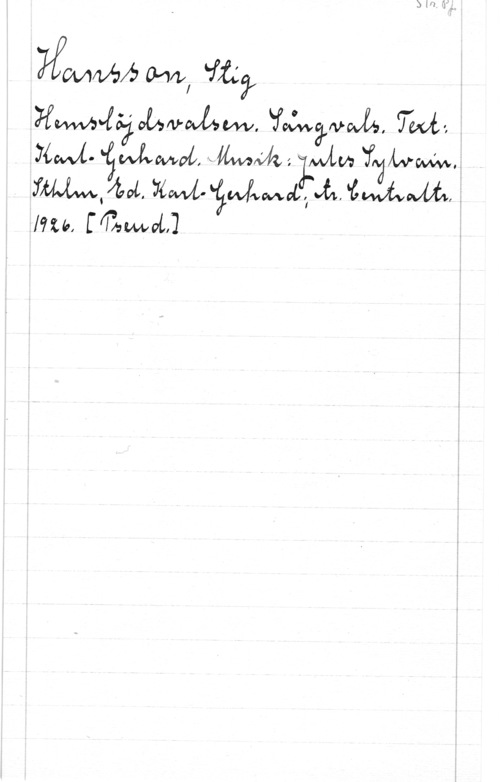 Hansson, Stig
Hemslöjdsvalsen. Sångvals. Text:
Karl-Gerhard. Musik: Jules Sylvain.
Sthlm, Ed. Karl-Gerhard; tr. Centraltr.
1926. [Pseud.]